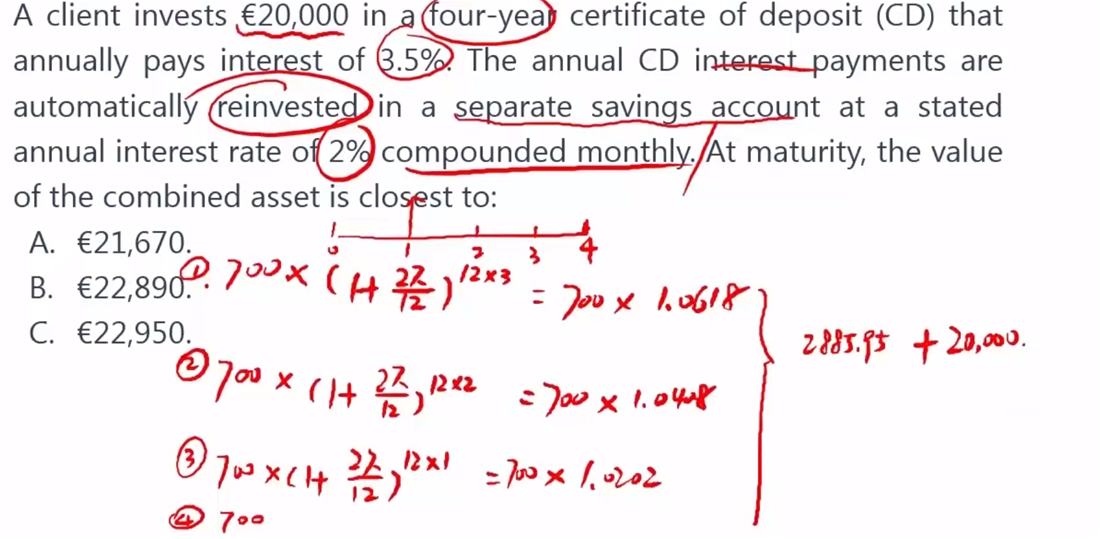 A client invests €20,000 in a four-year certificate of deposit (CD) that
annually pays interest of 3.5%. The annual CD interest payments are
automatically reinvested in a separate savings account at a stated
annual interest rate of 2% compounded monthly. At maturity, the value
of the combined asset is closest to:
A. €21,670.
B. €22,890.
C. €22,950.
0 1 2 3 4
① 700 × (1+ 2%/12)^12×3 = 700 × 1.0618
② 700 × (1+ 2%/12)^12×2 = 700 × 1.0408
③ 700 × (1+ 2%/12)^12×1 = 700 × 1.0202
④ 700
2885.95 + 20,000.